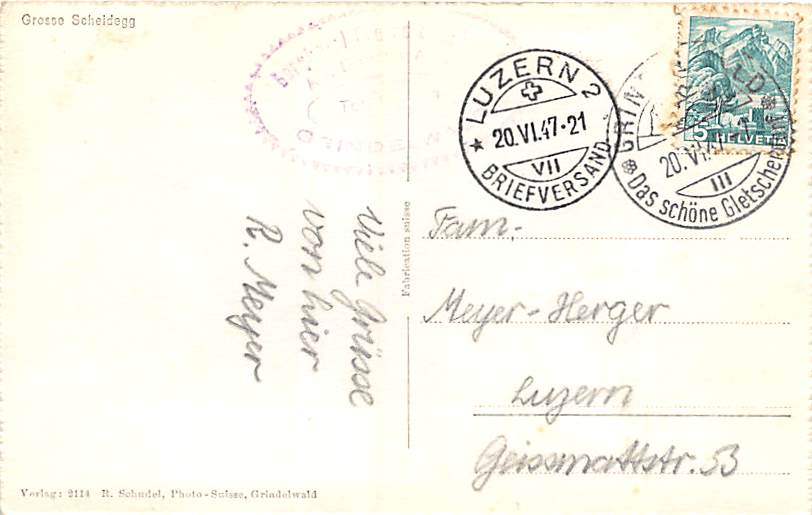 Grosse Scheidegg
LUZERN 2
20.VI.47·21
VII
BRIEFVERSAND
20.VI.47
III
Das schöne Gletscher
5 HELVETIA
Viele Grüsse
von hier
R. Meyer
Fabrication suisse
Fam.
Meyer-Herger
Luzern
Geissmattstr. 53
Verlag: 2114 R. Schudel, Photo-Suisse, Grindelwald